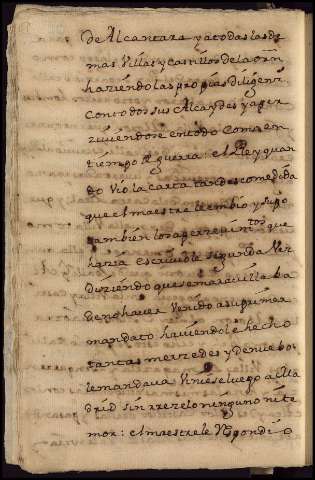 de Alcantara y a todas las de
mas Villas y castillos de la orn
haziendo las propias diligenzi
con todos sus Alcaydes y aper
ziviendose en todo Como en
tiempo de guerra: el Rey quan
do Vio la carta tan descomedida
que el maestre le embio y supo
tambien los aperzevimtos que
hazia escriviole segunda Vez
diziendo que se maravillaba
de no haver Venido a su primer
mandato haviendole hecho
tantas merzedes y de nuebo
le mandava Viniese luego a Ma
drid sin rezelo ninguno ni te
mor: el maestre le Respondio